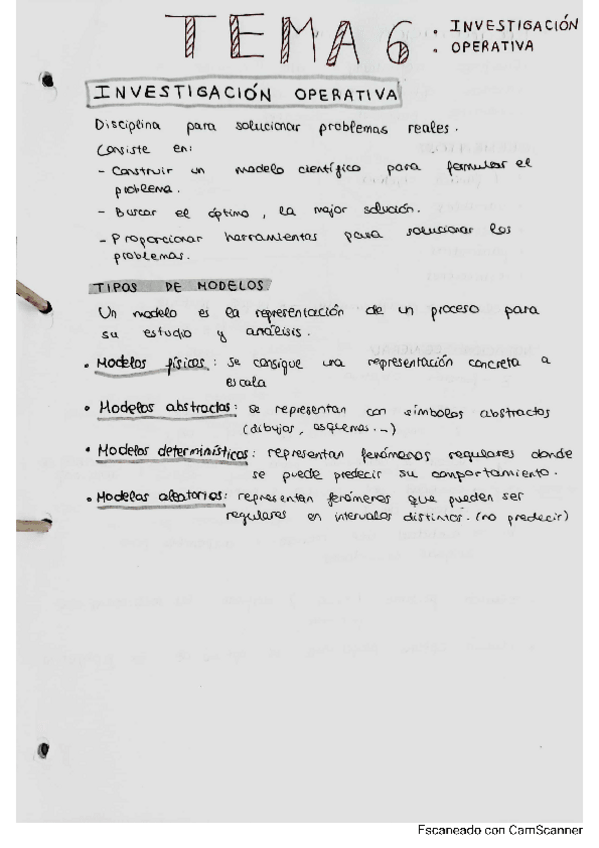 TEMA 6 : INVESTIGACIÓN
. OPERATIVA
INVESTIGACIÓN OPERATIVA
Disciplina para solucionar problemas reales.
Consiste en:
- Construir un modelo científico para formular el
problema.
- Buscar el óptimo, la major solución.
- Proporcionar herramientas para solucionar los
problemas.
TIPOS DE MODELOS
Un modelo es la representación de un proceso para
su estudio y análisis.
• Modelos físicos: se consigue una representación concreta a
escala
• Modelos abstractos: se representan con símbolos abstractos
(dibujos, esquemas...)
• Modelos determinísticos: representan fenómenos regulares donde
se puede predecir su comportamiento.
• Modelos aleatorios: representan fenómenos que pueden ser
regulares en intervalos distintos. (no predecir)
Escaneado con CamScanner